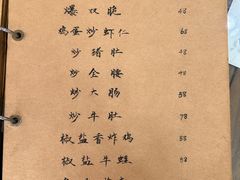 爆双脆 48
鸡蛋炒虾仁 68
炒猪肚 48
炒全腰 48
炒大肠 58
炒牛肚 78
椒盐香炸鸡 58
椒盐牛蛙 58